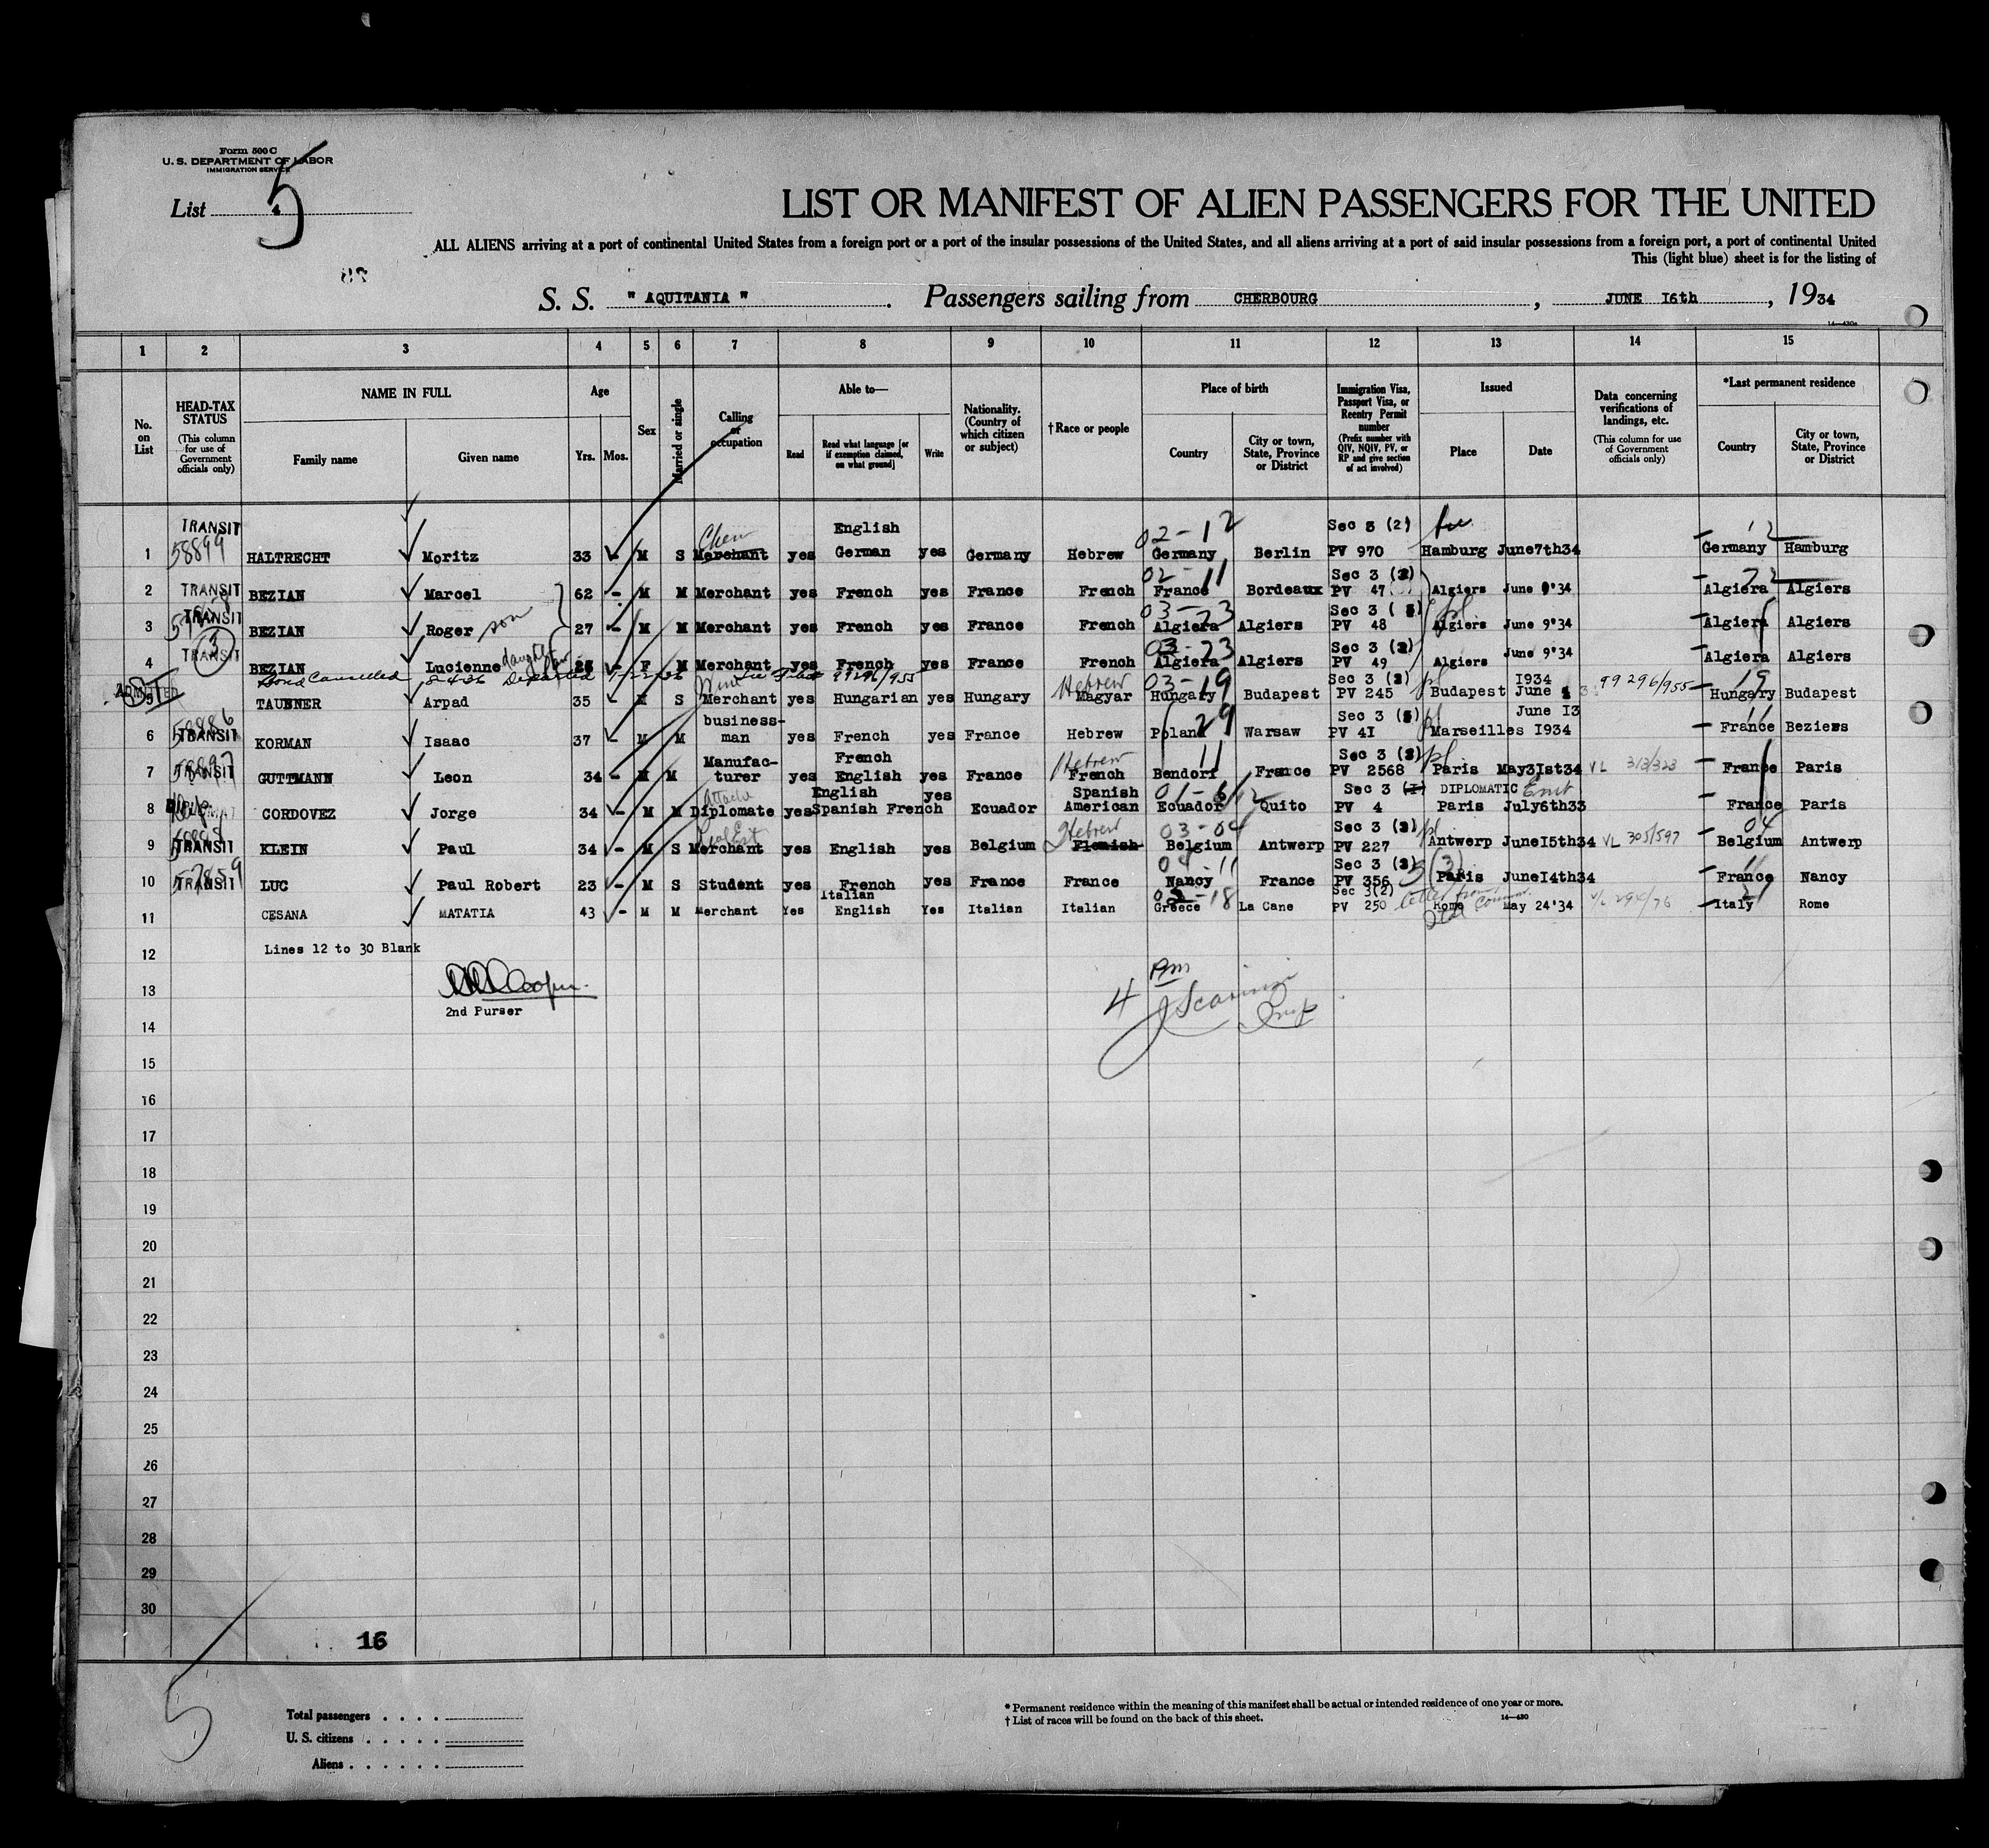 Form 500 C
U. S. DEPARTMENT OF LABOR
IMMIGRATION SERVICE
List 4
5
LIST OR MANIFEST OF ALIEN PASSENGERS FOR THE UNITED
ALL ALIENS arriving at a port of continental United States from a foreign port or a port of the insular possessions of the United States, and all aliens arriving at a port of said insular possessions from a foreign port, a port of continental United
This (light blue) sheet is for the listing of
S. S. " AQUITANIA " . Passengers sailing from CHERBOURG , JUNE I6th , 1934
1 2 3 4 5 6 7 8 9 10 11 12 13 14 15
No. on List
HEAD-TAX STATUS (This column for use of Government officials only)
NAME IN FULL
Family name Given name
Age
Yrs. Mos.
Sex
Married or single
Calling or occupation
Able to—
Read
Read what language [or if exemption claimed, on what ground]
Write
Nationality. (Country of which citizen or subject)
†Race or people
Place of birth
Country
City or town, State, Province or District
Immigration Visa, Passport Visa, or Reentry Permit number (Prefix number with QIV, NQIV, PV, or RP and give section of act involved)
Issued
Place Date
Data concerning verifications of landings, etc. (This column for use of Government officials only)
*Last permanent residence
Country
City or town, State, Province or District
TRANSIT English 02-12 Sec 3 (2) 12
1 58899 HALTRECHT Moritz 33 - M S Merchant yes German yes Germany Hebrew Germany Berlin PV 970 Hamburg June7th34 Germany Hamburg
02-11 Sec 3 (2)
2 TRANSIT BEZIAN Marcel 62 - M M Merchant yes French yes France French France Bordeaux PV 47 Algiers June 9'34 Algiera Algiers
03-23 Sec 3
3 TRANSIT BEZIAN Roger son 27 - M M Merchant yes French yes France French Algiera Algiers PV 48 Algiers June 9'34 Algiera Algiers
03-23 Sec 3 (2)
4 TRANSIT BEZIAN Lucienne 26 - F M Merchant yes French yes France French Algiera Algiers PV 49 Algiers June 9'34 Algiera Algiers
Bond Cancelled 8-4-36 Departed 99296/955
Hebrew 03-19 Sec 3 (2) I934 19
5 ADMITTED TAUBNER Arpad 35 - M S Merchant yes Hungarian yes Hungary Magyar Hungary Budapest PV 245 Budapest June 99296/955 Hungary Budapest
58886 29 Sec 3 June I3 11
6 TRANSIT KORMAN Isaac 37 - M M business-man yes French yes France Hebrew Poland Warsaw PV 4I Marseilles I934 France Beziers
French Hebrew 11 Sec 3 (2)
7 TRANSIT GUTTMANN Leon 34 - M M Manufac-turer yes English yes France French Bendorf France PV 2568 Paris May3Ist34 VL 313/323 France Paris
English Spanish Sec 3 (I) DIPLOMATIC
8 CORDOVEZ Jorge 34 - M M Diplomate yes Spanish French yes Ecuador American Ecuador Quito PV 4 Paris July6th33 France Paris
Hebrew 03-04 Sec 3 (2) 04
9 TRANSIT KLEIN Paul 34 - M S Merchant yes English yes Belgium Flemish Belgium Antwerp PV 227 Antwerp JuneI5th34 VL 305/597 Belgium Antwerp
57859 Sec 3 (2) 11
10 TRANSIT LUC Paul Robert 23 - M S Student yes French yes France France Nancy France PV 356 Paris JuneI4th34 France Nancy
Italian Sec 3(2) 21
11 CESANA MATATIA 43 - M M Merchant Yes English Yes Italian Italian Greece La Cane PV 250 Rome May 24'34 Italy Rome
12 Lines 12 to 30 Blank
13
2nd Purser
4 Pm
14
15
16
17
18
19
20
21
22
23
24
25
26
27
28
29
30
16
5
Total passengers
U. S. citizens
Aliens
* Permanent residence within the meaning of this manifest shall be actual or intended residence of one year or more.
† List of races will be found on the back of this sheet.
14—430